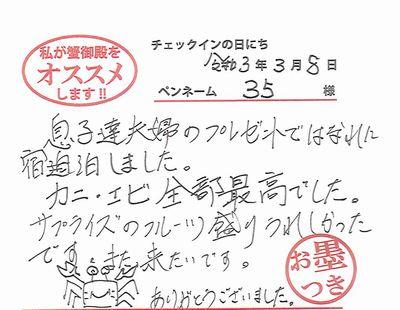 私が蟹御殿を
オススメ
します!!
チェックインの日にち
令和3年3月8日
ペンネーム 35 様
息子達夫婦のプレゼントではなれに
宿泊しました。
カニ・エビ全部最高でした。
サプライズのフルーツ盛りうれしかった
です。また来たいです。
ありがとうございました。
お墨
つき